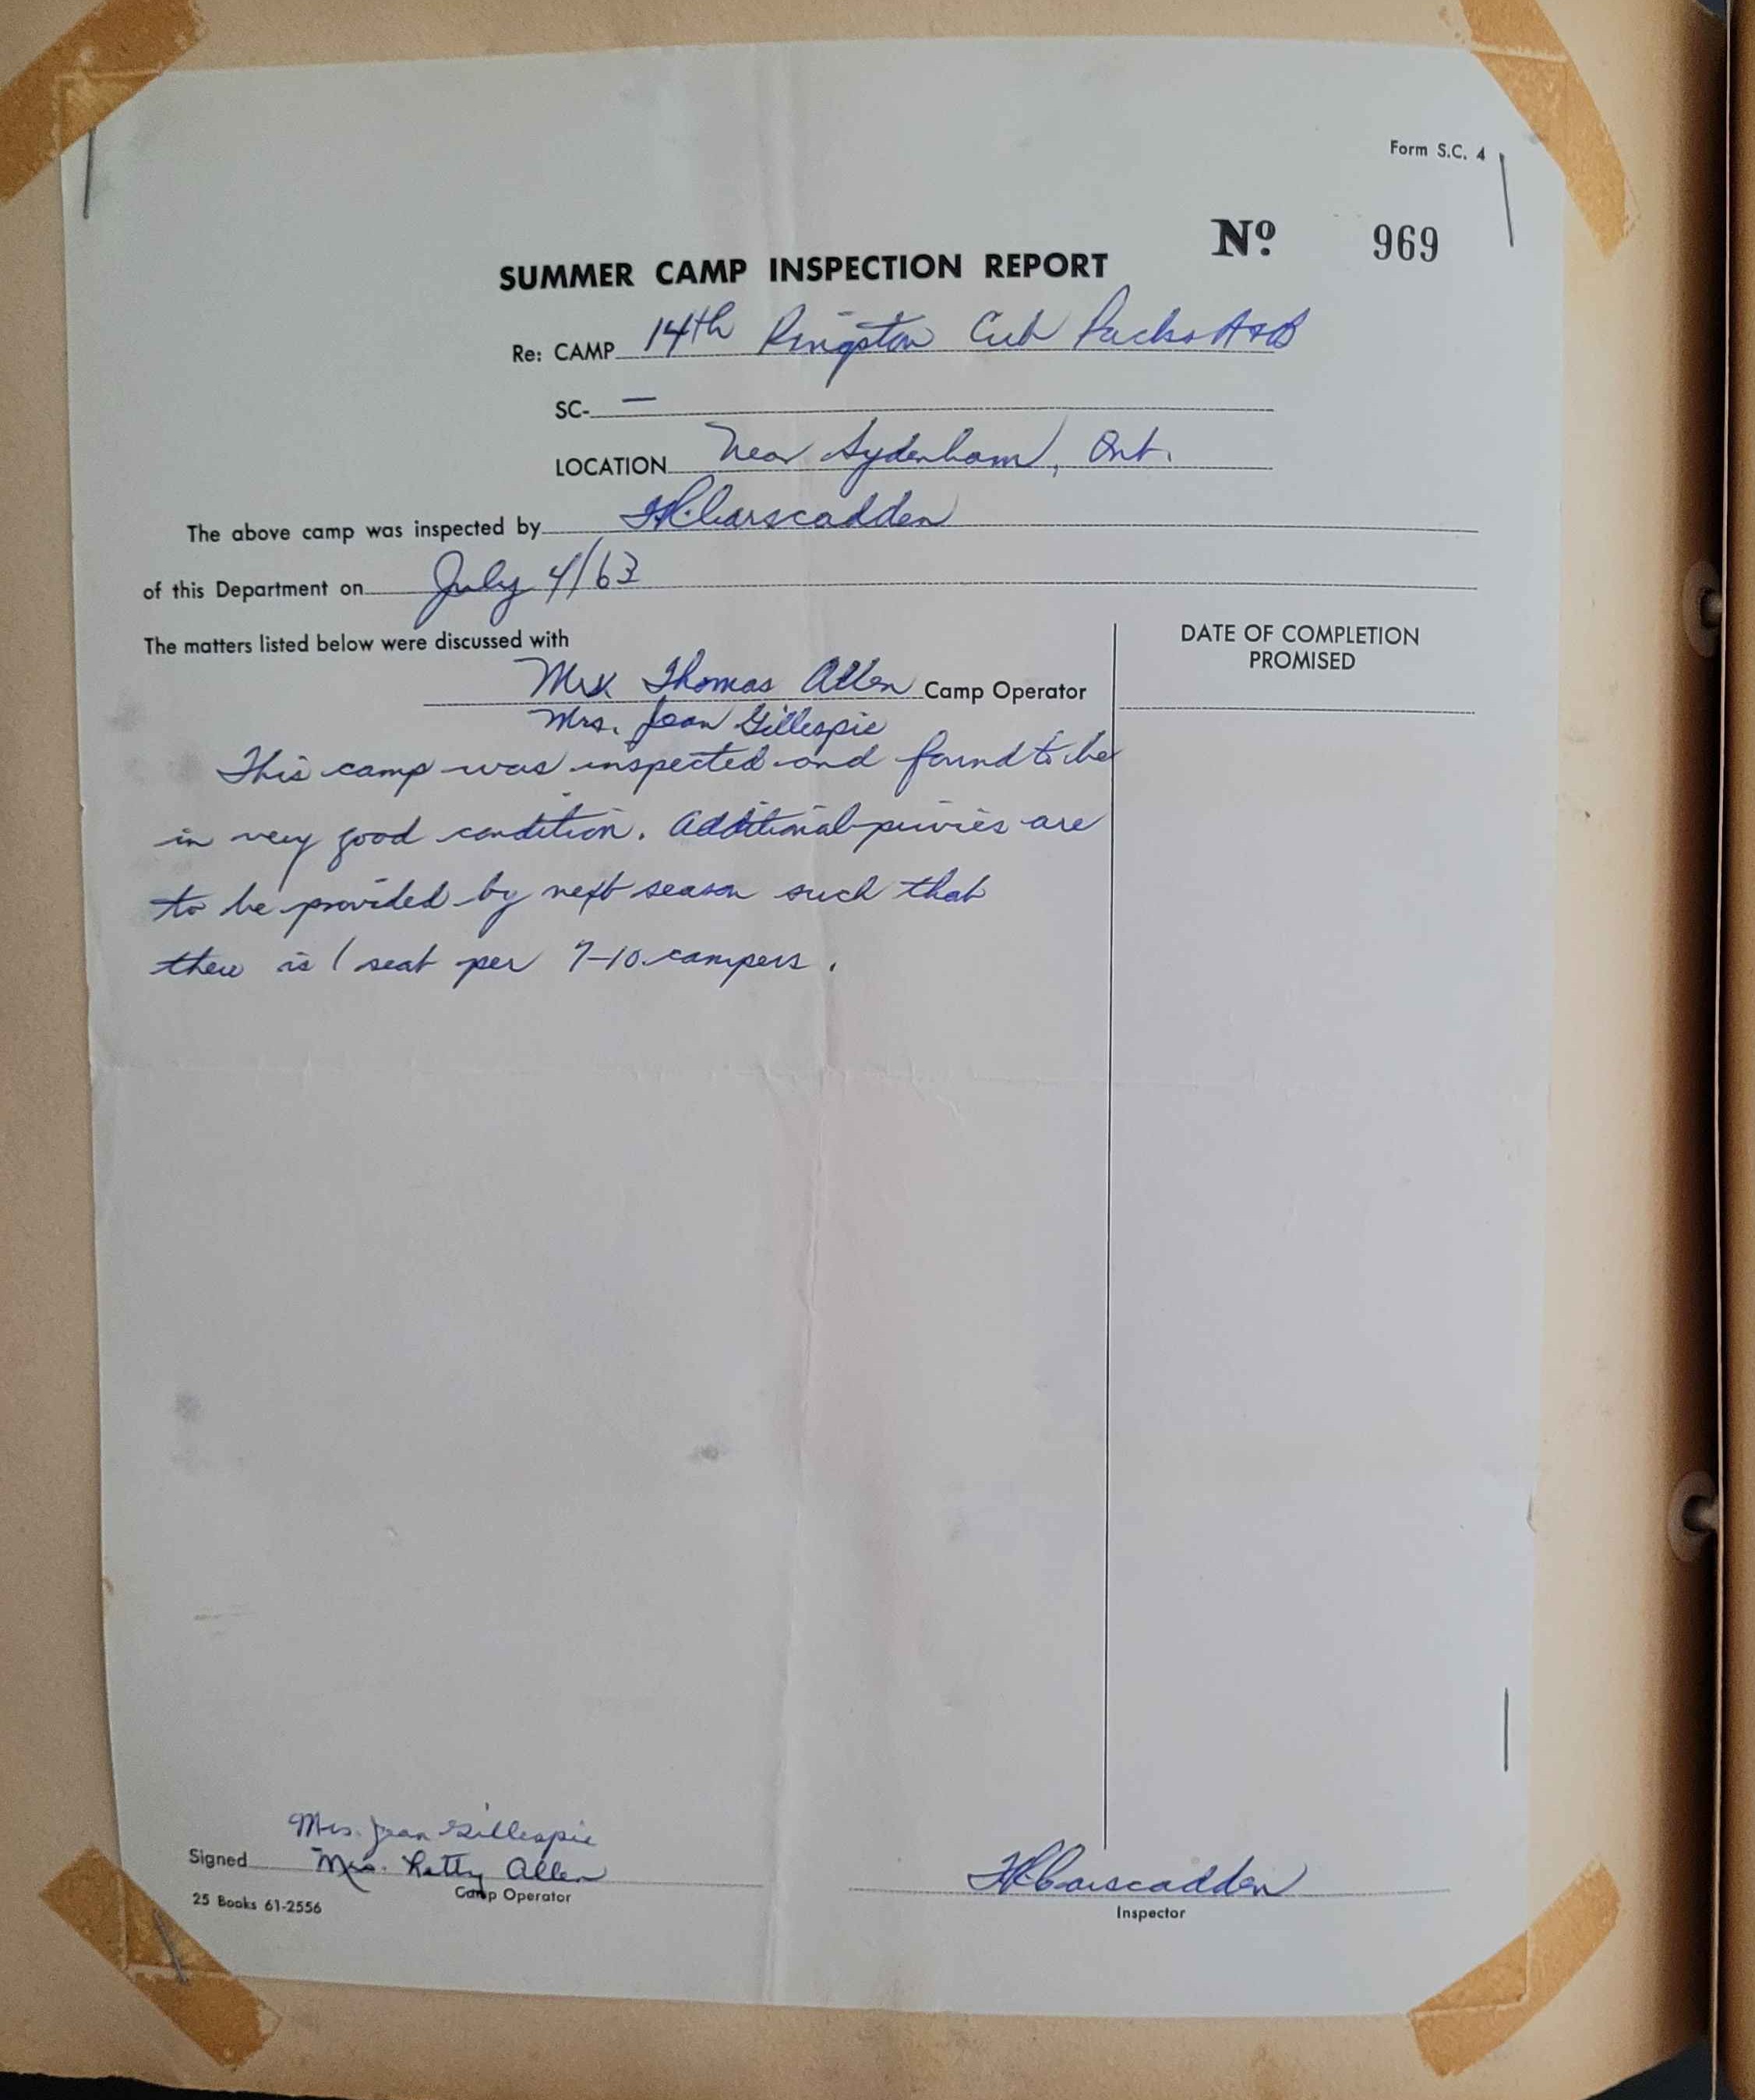 Form S.C. 4
Nº 969
SUMMER CAMP INSPECTION REPORT
Re: CAMP 14th Kingston Cub Packs A+B
SC- —
LOCATION Near Sydenham, Ont.
The above camp was inspected by Carscadden
of this Department on July 4/63
The matters listed below were discussed with
DATE OF COMPLETION
PROMISED
Thomas Allen Camp Operator
Mrs. Jean Gillespie
This camp was inspected and found to be
in very good condition. Additional privies are
to be provided by next season such that
there is 1 seat per 7-10 campers.
Mrs. Jean Gillespie
Signed Mrs. Allen
Camp Operator
Carscadden
Inspector
25 Books 61-2556